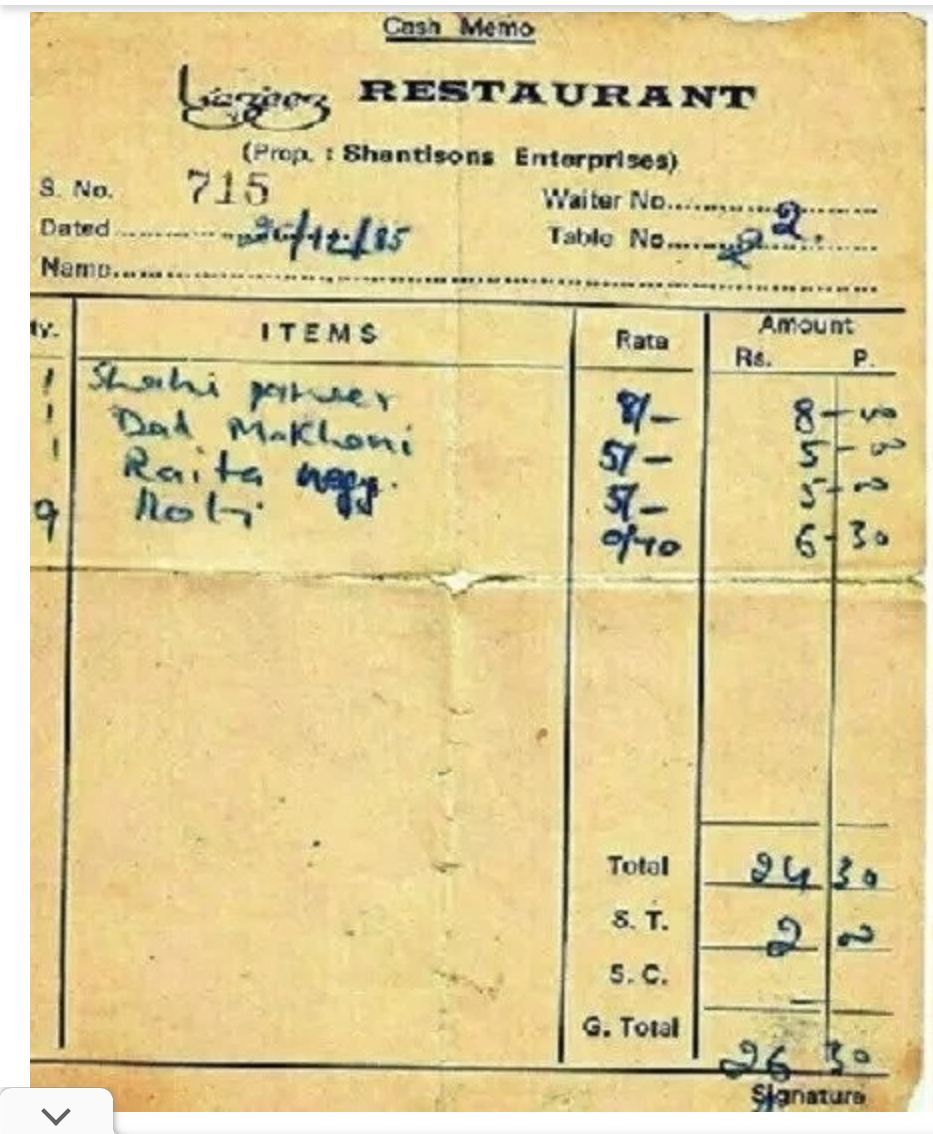 Cash Memo
Lazeez RESTAURANT
(Prop. : Shantisons Enterprises)
S. No. 715
Waiter No. 2
Dated 20/12/85
Table No. 2
Name
ty. ITEMS Rate Amount
Rs. P.
1 Shahi paneer 8/- 8-00
1 Dal Makhani 5/- 5-00
1 Raita vegg. 5/- 5-00
9 Roti 0/70 6-30
Total 24 30
S. T. 2 00
S. C. —
G. Total 26 30
Signature